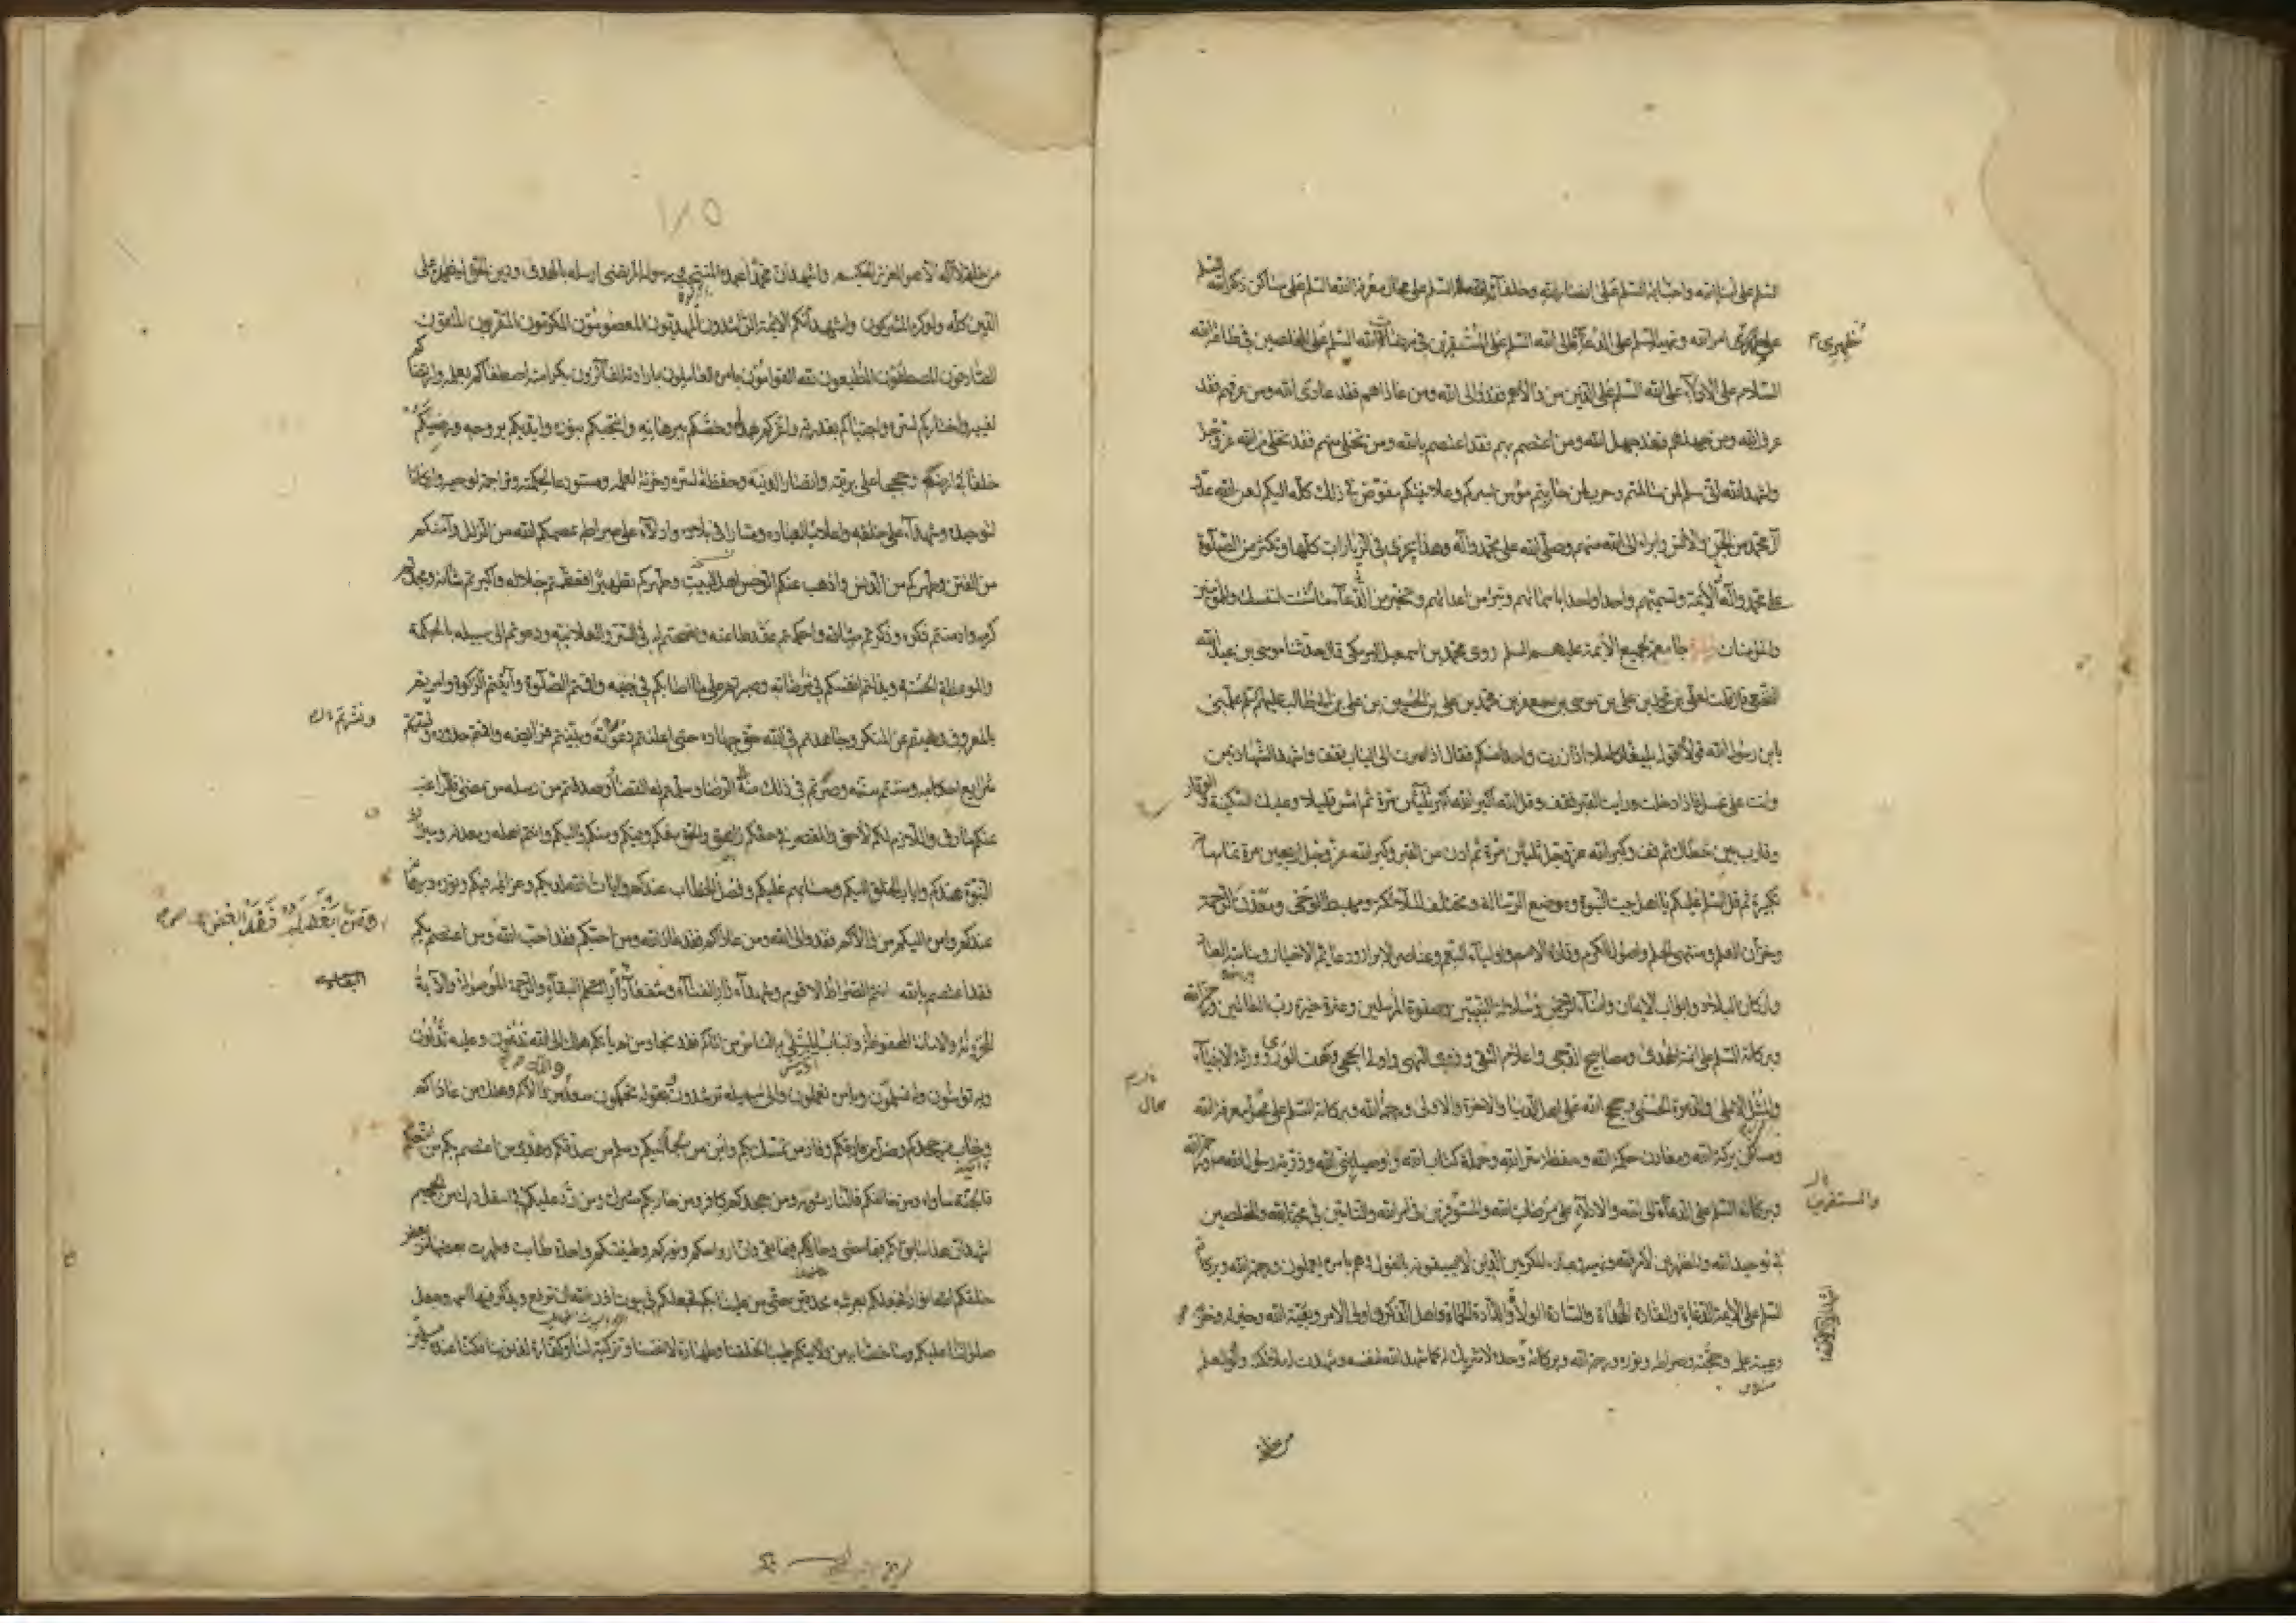 السلم على اولياء الله واصفيائه السلم على امناء الله واحبائه السلم على انصار الله وخلفائه السلم على محال معرفة الله السلم على مساكن ذكر الله السلم
على مظهرى امر الله ونهيه السلم على الدعاة الى الله السلم على المستقرين فى مرضات الله السلم على المخلصين فى طاعة الله
السلام على الادلاء على الله السلم على الذين من والاهم فقد والى الله ومن عاداهم فقد عادى الله ومن عرفهم فقد
عرف الله ومن جهلهم فقد جهل الله ومن اعتصم بهم فقد اعتصم بالله ومن تخلى منهم فقد تخلى من الله عز وجل
واشهد الله انى سلم لمن سالمتم وحرب لمن حاربتم مؤمن بسركم وعلانيتكم مفوض فى ذلك كله اليكم لعن الله عدو
آل محمد من الجن والانس وابراء الى الله منهم وصلى الله على محمد وآله وهذا يجزى فى الزيارات كلها وتكثر من الصلوة
على محمد وآله الائمة وتسميهم واحدا واحدا باسمائهم وتبرأ من اعدائهم وتخير من الدعاء ما شئت لنفسك وللمؤمنين
والمؤمنات زيارة جامعة لجميع الائمة عليهم السلم روى محمد بن اسمعيل البرمكى قال حدثنا موسى بن عبد الله
النخعى قال قلت لعلى بن محمد بن على بن موسى بن جعفر بن محمد بن على بن الحسين بن على بن ابيطالب عليهم السلم علمنى
يابن رسول الله قولا اقوله بليغا كاملا اذا زرت واحدا منكم فقال اذا صرت الى الباب فقف واشهد الشهادتين
وانت على غسل فاذا دخلت ورايت القبر فقف وقل الله اكبر الله اكبر ثلثين مرة ثم امش قليلا وعليك السكينة والوقار
وقارب بين خطاك ثم قف وكبر الله عز وجل ثلثين مرة ثم ادن من القبر وكبر الله عز وجل اربعين مرة تمام مائة
تكبيرة ثم قل السلم عليكم يا اهل بيت النبوة وموضع الرسالة ومختلف الملائكة ومهبط الوحى ومعدن الرحمة
وخزان العلم ومنتهى الحلم واصول الكرم وقادة الامم واولياء النعم وعناصر الابرار ودعائم الاخيار وساسة العباد
واركان البلاد وابواب الايمان وامناء الرحمن وسلالة النبيين وصفوة المرسلين وعترة خيرة رب العالمين ورحمة الله
وبركاته السلم على ائمة الهدى ومصابيح الدجى واعلام التقى وذوى النهى واولى الحجى وكهف الورى وورثة الانبياء
والمثل الاعلى والدعوة الحسنى وحجج الله على اهل الدنيا والاخرة والاولى ورحمة الله وبركاته السلم على محال معرفة الله
ومساكن بركة الله ومعادن حكمة الله وحفظة سر الله وحملة كتاب الله واوصياء نبى الله وذرية رسول الله ورحمة الله
وبركاته السلم على الدعاة الى الله والادلاء على مرضات الله والمستوفرين فى امر الله والتامين فى محبة الله والمخلصين
فى توحيد الله والمظهرين لامر الله ونهيه وعباده المكرمين الذين لا يسبقونه بالقول وهم بامره يعملون ورحمة الله وبركاته
السلم على الائمة الدعاة والقادة الهداة والسادة الولاة والذادة الحماة واهل الذكر واولى الامر وبقية الله وخيرته وحزبه
وعيبة علمه وحجته وصراطه ونوره ورحمة الله وبركاته وحده لا شريك له كما شهد الله لنفسه وشهدت له ملائكته واولو العلم
مظهرى
والمستقرين
اشهد ان لا اله الا الله
محال
من خلقه
١٨٥
من خلقه لا اله الا هو العزيز الحكيم واشهد ان محمدا عبده المنتجب ورسوله المرتضى ارسله بالهدى ودين الحق ليظهره على
الدين كله ولو كره المشركون واشهد انكم الائمة الراشدون المهديون المعصومون المكرمون المقربون المتقون
الصادقون المصطفون المطيعون لله القوامون بامره العاملون بارادته الفائزون بكرامته اصطفاكم بعلمه وارتضاكم
لغيبه واختاركم لسره واجتباكم بقدرته واعزكم بهداه وخصكم ببرهانه وانتجبكم بنوره وايدكم بروحه ورضيكم
خلفاء فى ارضه وحججا على بريته وانصارا لدينه وحفظة لسره وخزنة لعلمه ومستودعا لحكمته وتراجمة لوحيه واركانا
لتوحيده وشهداء على خلقه واعلاما لعباده ومنارا فى بلاده وادلاء على صراطه عصمكم الله من الزلل وآمنكم
من الفتن وطهركم من الدنس واذهب عنكم الرجس اهل البيت وطهركم تطهيرا فعظمتم جلاله واكبرتم شانه ومجدتم
كرمه وادمنتم ذكره وذكرتم ميثاقه واحكمتم عقد طاعته ونصحتم له فى السر والعلانية ودعوتم الى سبيله بالحكمة
والموعظة الحسنة وبذلتم انفسكم فى مرضاته وصبرتم على ما اصابكم فى جنبه واقمتم الصلوة وآتيتم الزكوة وامرتم
بالمعروف ونهيتم عن المنكر وجاهدتم فى الله حق جهاده حتى اعلنتم دعوته وبينتم فرائضه واقمتم حدوده
شرايع احكامه وسننتم سنته وصرتم فى ذلك منه الى الرضا وسلمتم له القضاء وصدقتم من رسله من مضى فالراغب
عنكم مارق واللازم لكم لاحق والمقصر فى حقكم زاهق والحق معكم وفيكم ومنكم واليكم وانتم اهله ومعدنه وميراث
النبوة عندكم واياب الخلق اليكم وحسابهم عليكم وفصل الخطاب عندكم وايات الله لديكم وعزائمه فيكم ونوره وبرهانه
عندكم وامره اليكم من والاكم فقد والى الله ومن عاداكم فقد عاد الله ومن احبكم فقد احب الله ومن اعتصم بكم
فقد اعتصم بالله انتم الصراط الاقوم وشهداء دار الفناء وشفعاء دار البقاء والرحمة الموصولة والاية
المخزونة والامانة المحفوظة والباب المبتلى به الناس من اتاكم فقد نجا ومن لم ياتكم هلك الى الله تدعون وعليه تدلون
وبه تؤمنون وله تسلمون وبامره تعملون والى سبيله ترشدون وبقوله تحكمون سعد من والاكم وهلك من عاداكم
وخاب من جحدكم وضل من فارقكم وفاز من تمسك بكم وامن من لجأ اليكم وسلم من صدقكم وهدى من اعتصم بكم من اتبعكم
فالجنة ماواه ومن خالفكم فالنار مثويه ومن جحدكم كافر ومن حاربكم مشرك ومن رد عليكم فى اسفل درك من الجحيم
اشهد ان هذا سابق لكم فيما مضى وجار لكم فيما بقى وان ارواحكم ونوركم وطينتكم واحدة طابت وطهرت بعضها من بعض
خلقكم الله انوارا فجعلكم بعرشه محدقين حتى من علينا بكم فجعلكم فى بيوت اذن الله ان ترفع ويذكر فيها اسمه وجعل
صلواتنا عليكم وما خصنا به من ولايتكم طيبا لخلقنا وطهارة لانفسنا وتزكية لنا وكفارة لذنوبنا فكنا عنده مسلمين
ونشرتم
ومن ابغضكم فقد ابغض الله